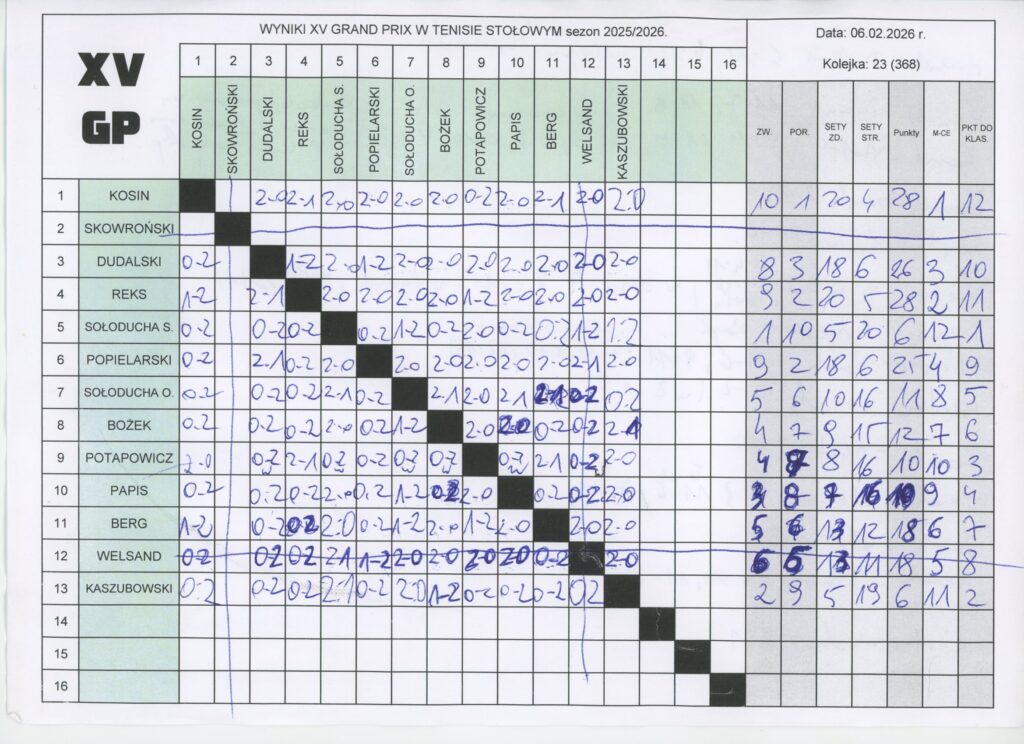 WYNIKI XV GRAND PRIX W TENISIE STOŁOWYM sezon 2025/2026.
Data: 06.02.2026 r.
XV
GP
1 2 3 4 5 6 7 8 9 10 11 12 13 14 15 16
Kolejka: 23 (368)
KOSIN SKOWROŃSKI DUDALSKI REKS SOŁODUCHA S. POPIELARSKI SOŁODUCHA O. BOŻEK POTAPOWICZ PAPIS BERG WELSAND KASZUBOWSKI
ZW. POR. SETY ZD. SETY STR. Punkty M-CE PKT DO KLAS.
1 KOSIN 2-0 2-1 2-0 2-0 2-0 2-0 0-2 2-0 2-1 2-0 2:0 10 1 20 4 28 1 12
2 SKOWROŃSKI
3 DUDALSKI 0-2 1-2 2-0 1-2 2-0 2-0 2-0 2-0 2-0 2-0 2-0 8 3 18 6 26 3 10
4 REKS 1-2 2-1 2-0 2-0 2-0 2-0 1-2 2-0 2-0 2-0 2-0 9 2 20 5 28 2 11
5 SOŁODUCHA S. 0-2 0-2 0-2 0-2 1-2 0-2 2-0 0-2 0:2 1-2 1:2 1 10 5 20 6 12 1
6 POPIELARSKI 0-2 2-1 0-2 2-0 2-0 2-0 2-0 2-0 2-0 2-1 2-0 9 2 18 6 25 4 9
7 SOŁODUCHA O. 0-2 0-2 0-2 2-1 0-2 2-1 2-0 2-1 2-1 0-2 0:2 5 6 10 16 11 8 5
8 BOŻEK 0-2 0-2 0-2 2-0 0-2 1-2 2-0 2-0 0-2 0-2 2-1 4 7 9 15 12 7 6
9 POTAPOWICZ 2-0 0-2 2-1 0-2 0-2 0-2 0-2 0-2 2-1 0-2 2-0 4 8 16 10 10 3
10 PAPIS 0-2 0:2 0-2 2-0 0:2 1-2 0-2 2-0 0-2 0-2 2-0 3 8 7 16 10 9 4
11 BERG 1-2 0-2 0-2 2:0 0-2 1-2 2-0 1-2 2-0 2-0 2-0 5 6 13 12 18 6 7
12 WELSAND 0-2 0-2 0-2 2-1 1-2 2-0 2-0 2-0 2-0 0-2 2-0 6 5 13 11 18 5 8
13 KASZUBOWSKI 0:2 0-2 0-2 2:1 0-2 2:0 1-2 0-2 0-2 0-2 0-2 2 9 5 19 6 11 2
14
15
16